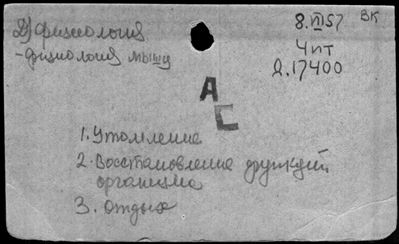 2) физиология
- физиология мышц
8.VII 57 ВК
4 пт
Д.17400
А
С
1. Утомление
2. Восстановление функций
организма
3. Отдых